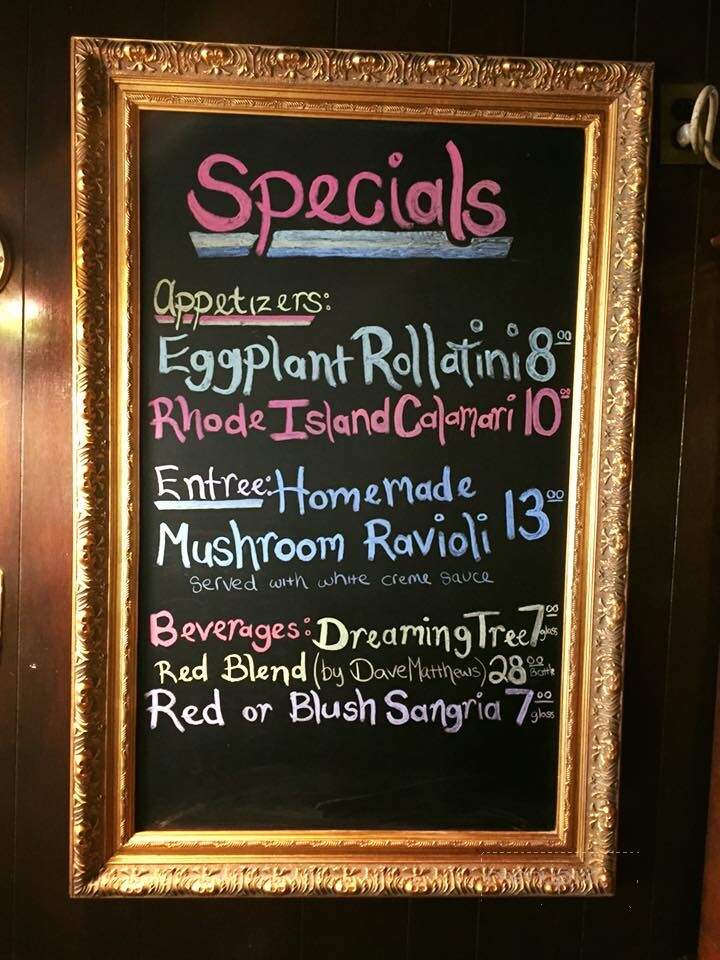 Specials
Appetizers:
Eggplant Rollatini 8.00
Rhode Island Calamari 10.00
Entree: Homemade
Mushroom Ravioli 13.00
served with white creme sauce
Beverages: Dreaming Tree 7.00 glass
Red Blend (by Dave Matthews) 28.00 Bottle
Red or Blush Sangria 7.00 glass